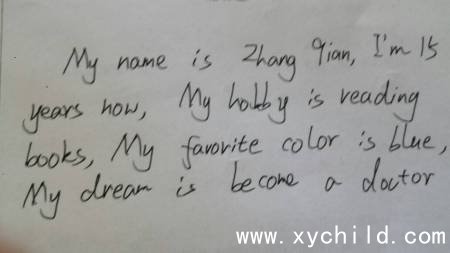 My name is Zhang Qian, I'm 15
years now, My hobby is reading
books, My favorite color is blue,
My dream is become a doctor
www.xychild.com